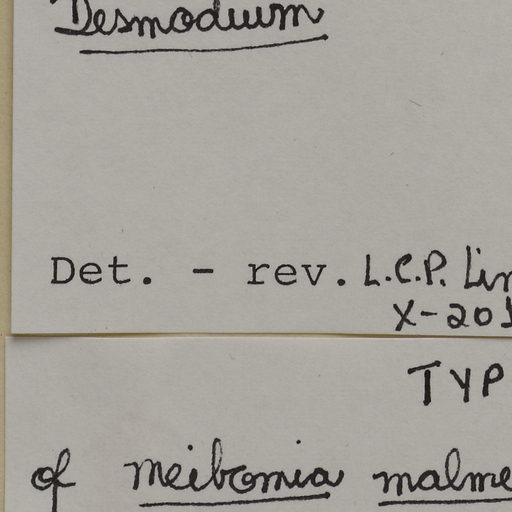 Desmodium
Det. - rev. L.C.P. Lim
X-201
TYP
of meibomia malme